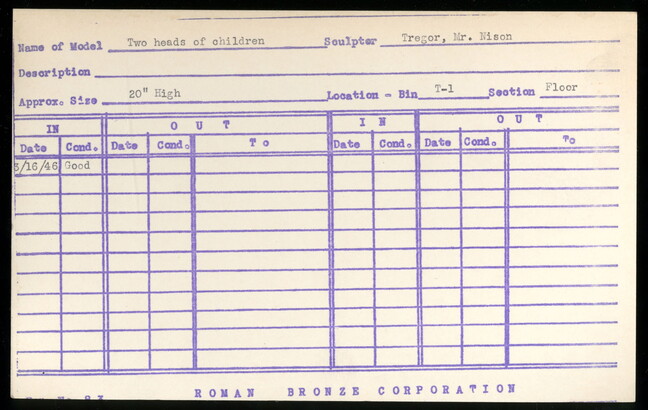 Name of Model Two heads of children Sculptor Tregor, Mr. Nison
Description
Approx. Size 20" High Location - Bin T-1 Section Floor
IN OUT IN OUT
Date Cond. Date Cond. To Date Cond. Date Cond. To
3/16/46 Good
ROMAN BRONZE CORPORATION